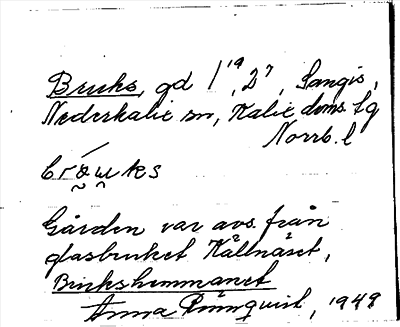 Bruks, gd 1/19, 27, Sangis,
Nederkalix sn, Kalix doms. lg
Norrb. l
Gården var avs. från
glasbruket Källnäset,
Brukshemmanet
Anna Rönnquist, 1949